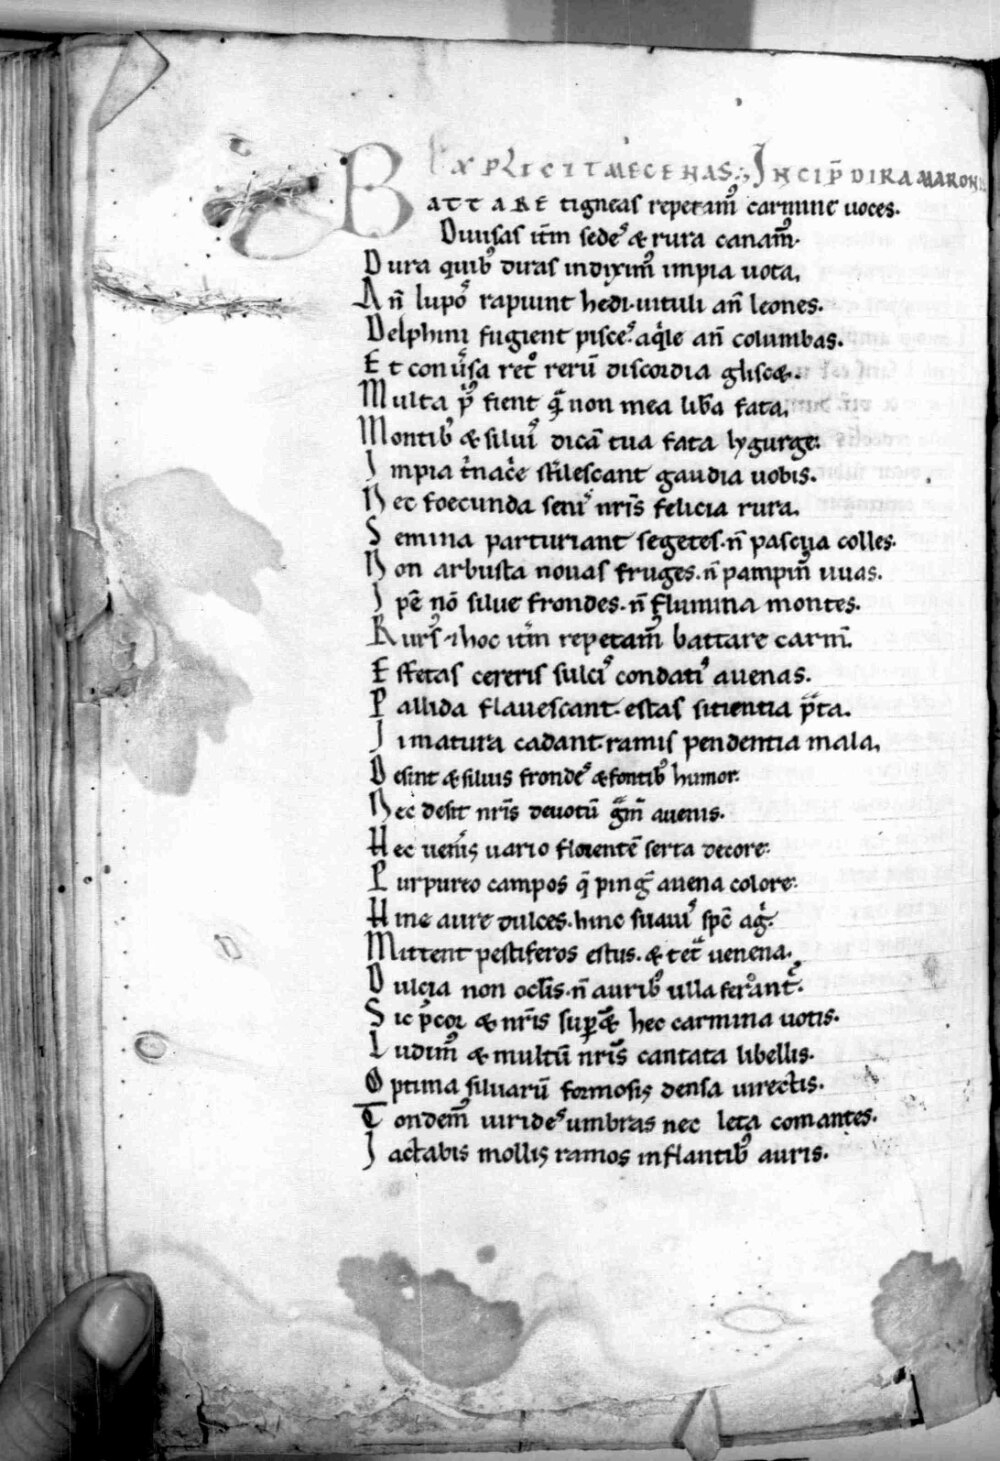 EXPLICIT MECENAS:, INCIP̄ DIRA MARONIS
BATTARE tigneas repetam᷒ carmine uoces.
Diuisas it̄m sedeˢ & rura canam᷒.
Dura quib᷒ diras indixim᷒ impia uota,
An̄ lupoˢ rapiunt hedi. uituli an̄ leones.
Delphini fugient pisceˢ. aq̓le an̄ columbas.
Et conu̓sa ret͛o rerū discordia gliscæ.
Multa p̓ˢ fient q̄ non mea lib̄a fata,
Montib᷒ & siluiˢ dicā tua fata lygurge.
Impia t̓nac̓e st̓ilescant gaudia uobis.
Nec foecunda seniˢ nr̄is felicia rura,
Semina parturiant segetes. n̄ pascua colles.
Non arbusta nouas fruges. n̄ pampin᷒ uuas.
Ipē nō silue frondes. n̄ flumina montes.
Rurs᷒ ⁊ hoc it̄m repetam᷒ battare carm̄.
Effetas cereris sulciˢ condatiˢ auenas.
Pallida flauescant. estas sitientia p̄ta.
Iimatura cadant. ramis pendentia mala,
Desint & siluis frondeˢ & fontib᷒ humor.
Nec desit nr̄is deuotū g̅m̄ auenis.
Hec uen̓is uario florentē serta decore.
Purpureo campos q̄ ping̅ auena colore.
Hinc aure dulces. hinc suauiˢ spc̄ ag̓.
Mittent pestiferos estus. & tetᷓ uenena.
Dulcia non oclis. n̄ aurib᷒ ulla ferant᷑.
Sic p̄cor & nr̄is sup̱æ hec carmina uotis.
Ludim᷒ & multū nr̄is cantata libellis.
Optima siluarū formosis densa uirectis.
Tondem᷒ uirideˢ umbras nec leta comantes.
Iactabis mollis ramos inflantib᷒ auris.